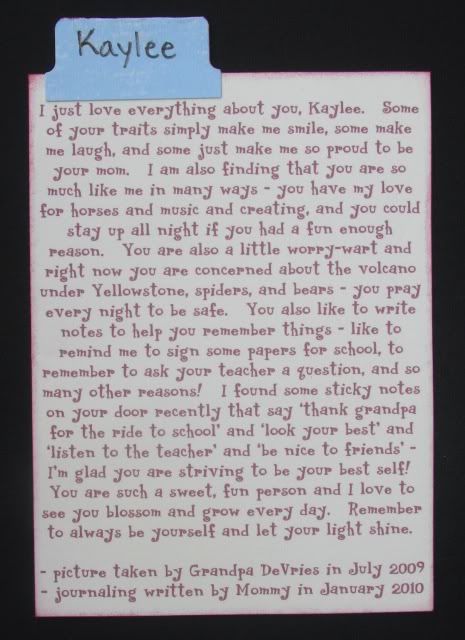 Kaylee
I just love everything about you, Kaylee. Some
of your traits simply make me smile, some make
me laugh, and some just make me so proud to be
your mom. I am also finding that you are so
much like me in many ways - you have my love
for horses and music and creating, and you could
stay up all night if you had a fun enough
reason. You are also a little worry-wart and
right now you are concerned about the volcano
under Yellowstone, spiders, and bears - you pray
every night to be safe. You also like to write
notes to help you remember things - like to
remind me to sign some papers for school, to
remember to ask your teacher a question, and so
many other reasons! I found some sticky notes
on your door recently that say 'thank grandpa
for the ride to school' and 'look your best' and
'listen to the teacher' and 'be nice to friends' -
I'm glad you are striving to be your best self!
You are such a sweet, fun person and I love to
see you blossom and grow every day. Remember
to always be yourself and let your light shine.
- picture taken by Grandpa DeVries in July 2009
- journaling written by Mommy in January 2010